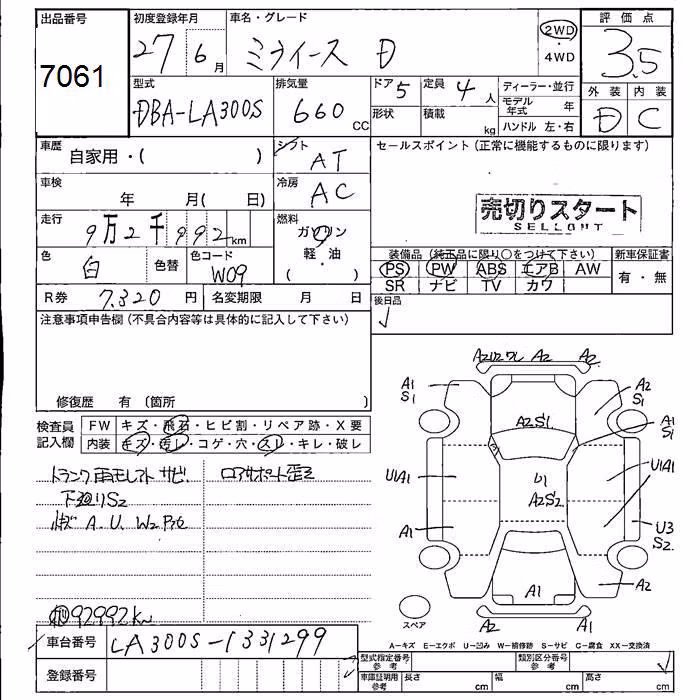 出品番号
7061
初度登録年月
27 6月
車名・グレード
ミライース D
2WD・4WD
評価点
3.5
外装 内装
D C
型式
DBA-LA300S
排気量
660 CC
ドア 5
定員 4人
形状
積載 kg
ディーラー・並行
モデル年式 年
ハンドル 左・右
車歴 自家用・( )
シフト AT
セールスポイント (正常に機能するものに限ります)
車検 年 月( 日)
冷房 AC
売切りスタート
SELLOUT
走行 9万2千992km
燃料 ガソリン
軽・油
( )
色 白 色替
色コード W09
装備品 (純正品に限り○をつけて下さい)
新車保証書
PS PW ABS エアB AW
有・無
SR ナビ TV カワ
R券 7,320円
名変期限 月 日
後日品
注意事項申告欄 (不具合内容等は具体的に記入して下さい)
修復歴 有 〔箇所 〕
検査員記入欄
FW キズ・飛石・ヒビ割・リペア跡・X要
内装 キズ・汚レ・コゲ・穴・スレ・キレ・破レ
トランク雨モレアト サビ
下廻りS2
A.U. W2
コアサポート歪ミ
92992km
A2 A2
A1 S1
A2 S1
A2S1
A1 S1
U1A1
U1
A2S2
U1A1
A1
U3 S2
A1
A2
A2 A1
スペア
A-キズ E-エクボ U-凹み W-補修跡 S-サビ C-腐食 XX-交換済
車台番号 LA300S-1331299
型式指定番号 参考
類別区分番号 参考
登録番号
車庫証明用 参考
長さ cm 幅 cm 高さ cm